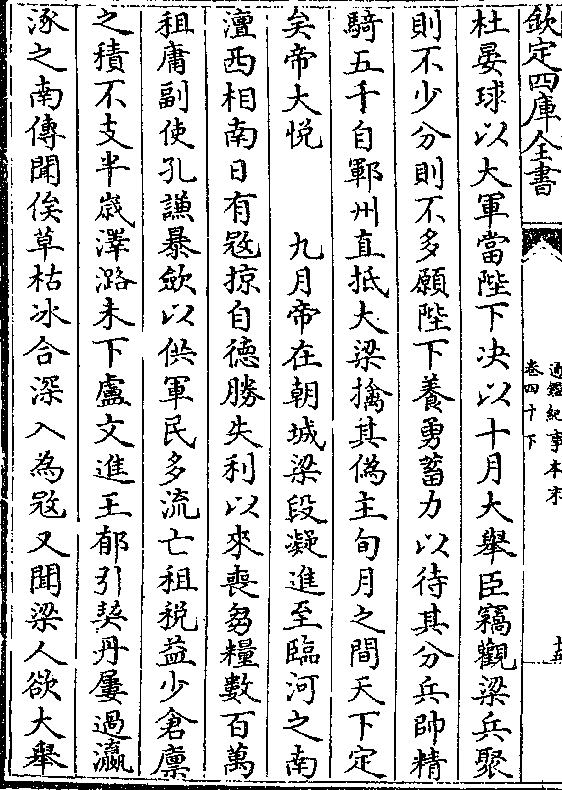 欽定四庫全書
通鑑紀事本末
卷四十下
杜晏球以大軍當陛下决以十月大舉臣竊觀梁兵聚
則不少分則不多願陛下養勇蓄力以待其分兵帥精
騎五千自鄆州直抵大梁擒其偽主旬月之間天下定
矣帝大悅　九月帝在朝城梁段凝進至臨河之南
澶西相南日有㓂掠自德勝失利以來喪芻糧數百萬
租庸副使孔謙暴歛以供軍民多流亡租税益少倉廩
之積不支半歳澤潞未下盧文進王郁引契丹屢過瀛
涿之南傳聞俟草枯冰合深入為㓂又聞梁人欲大舉